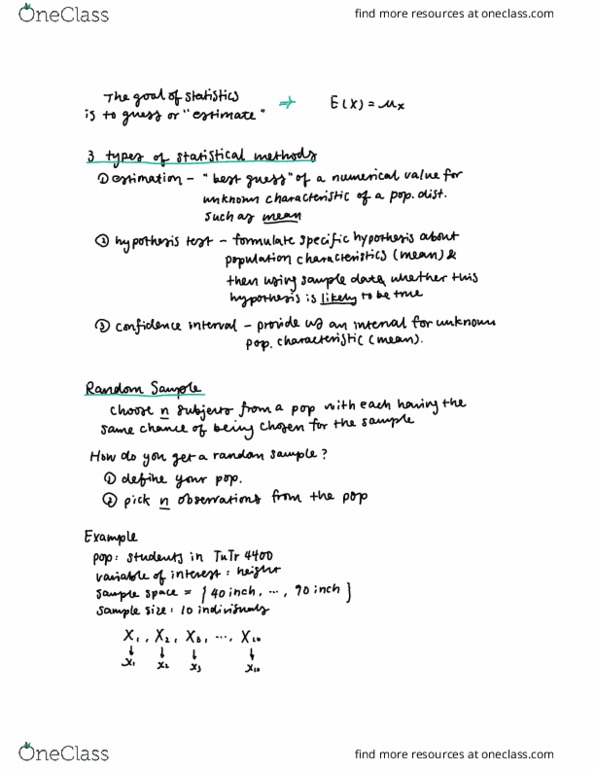 OneClass
find more resources at oneclass.com
The goal of statistics
is to guess or "estimate" → E(X) = μx
3 types of statistical methods
① estimation - "best guess" of a numerical value for
unknown characteristic of a pop. dist.
such as mean
② hypothesis test - formulate specific hypothesis about
population characteristics (mean) &
then using sample data, whether this
hypothesis is likely to be true
③ confidence interval - provide us an interval for unknown
pop. characteristic (mean).
Random Sample
choose n subjects from a pop with each having the
same chance of being chosen for the sample
How do you get a random sample?
① define your pop.
② pick n observations from the pop
Example
pop: students in TuTr 4400
variable of interest: height
sample space = {40 inch, ..., 90 inch}
sample size: 10 individuals
X₁, X₂, X₃, ..., X₁₀
↓ ↓ ↓ ↓
x₁ x₂ x₃ x₁₀
OneClass
find more resources at oneclass.com